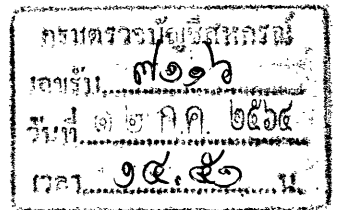 กรมตรวจบัญชีสหกรณ์
เลขรับ ๗๑๑๖
วันที่ ๑๒ ก.ค. ๒๕๖๔
เวลา ๑๔.๕๑ น.